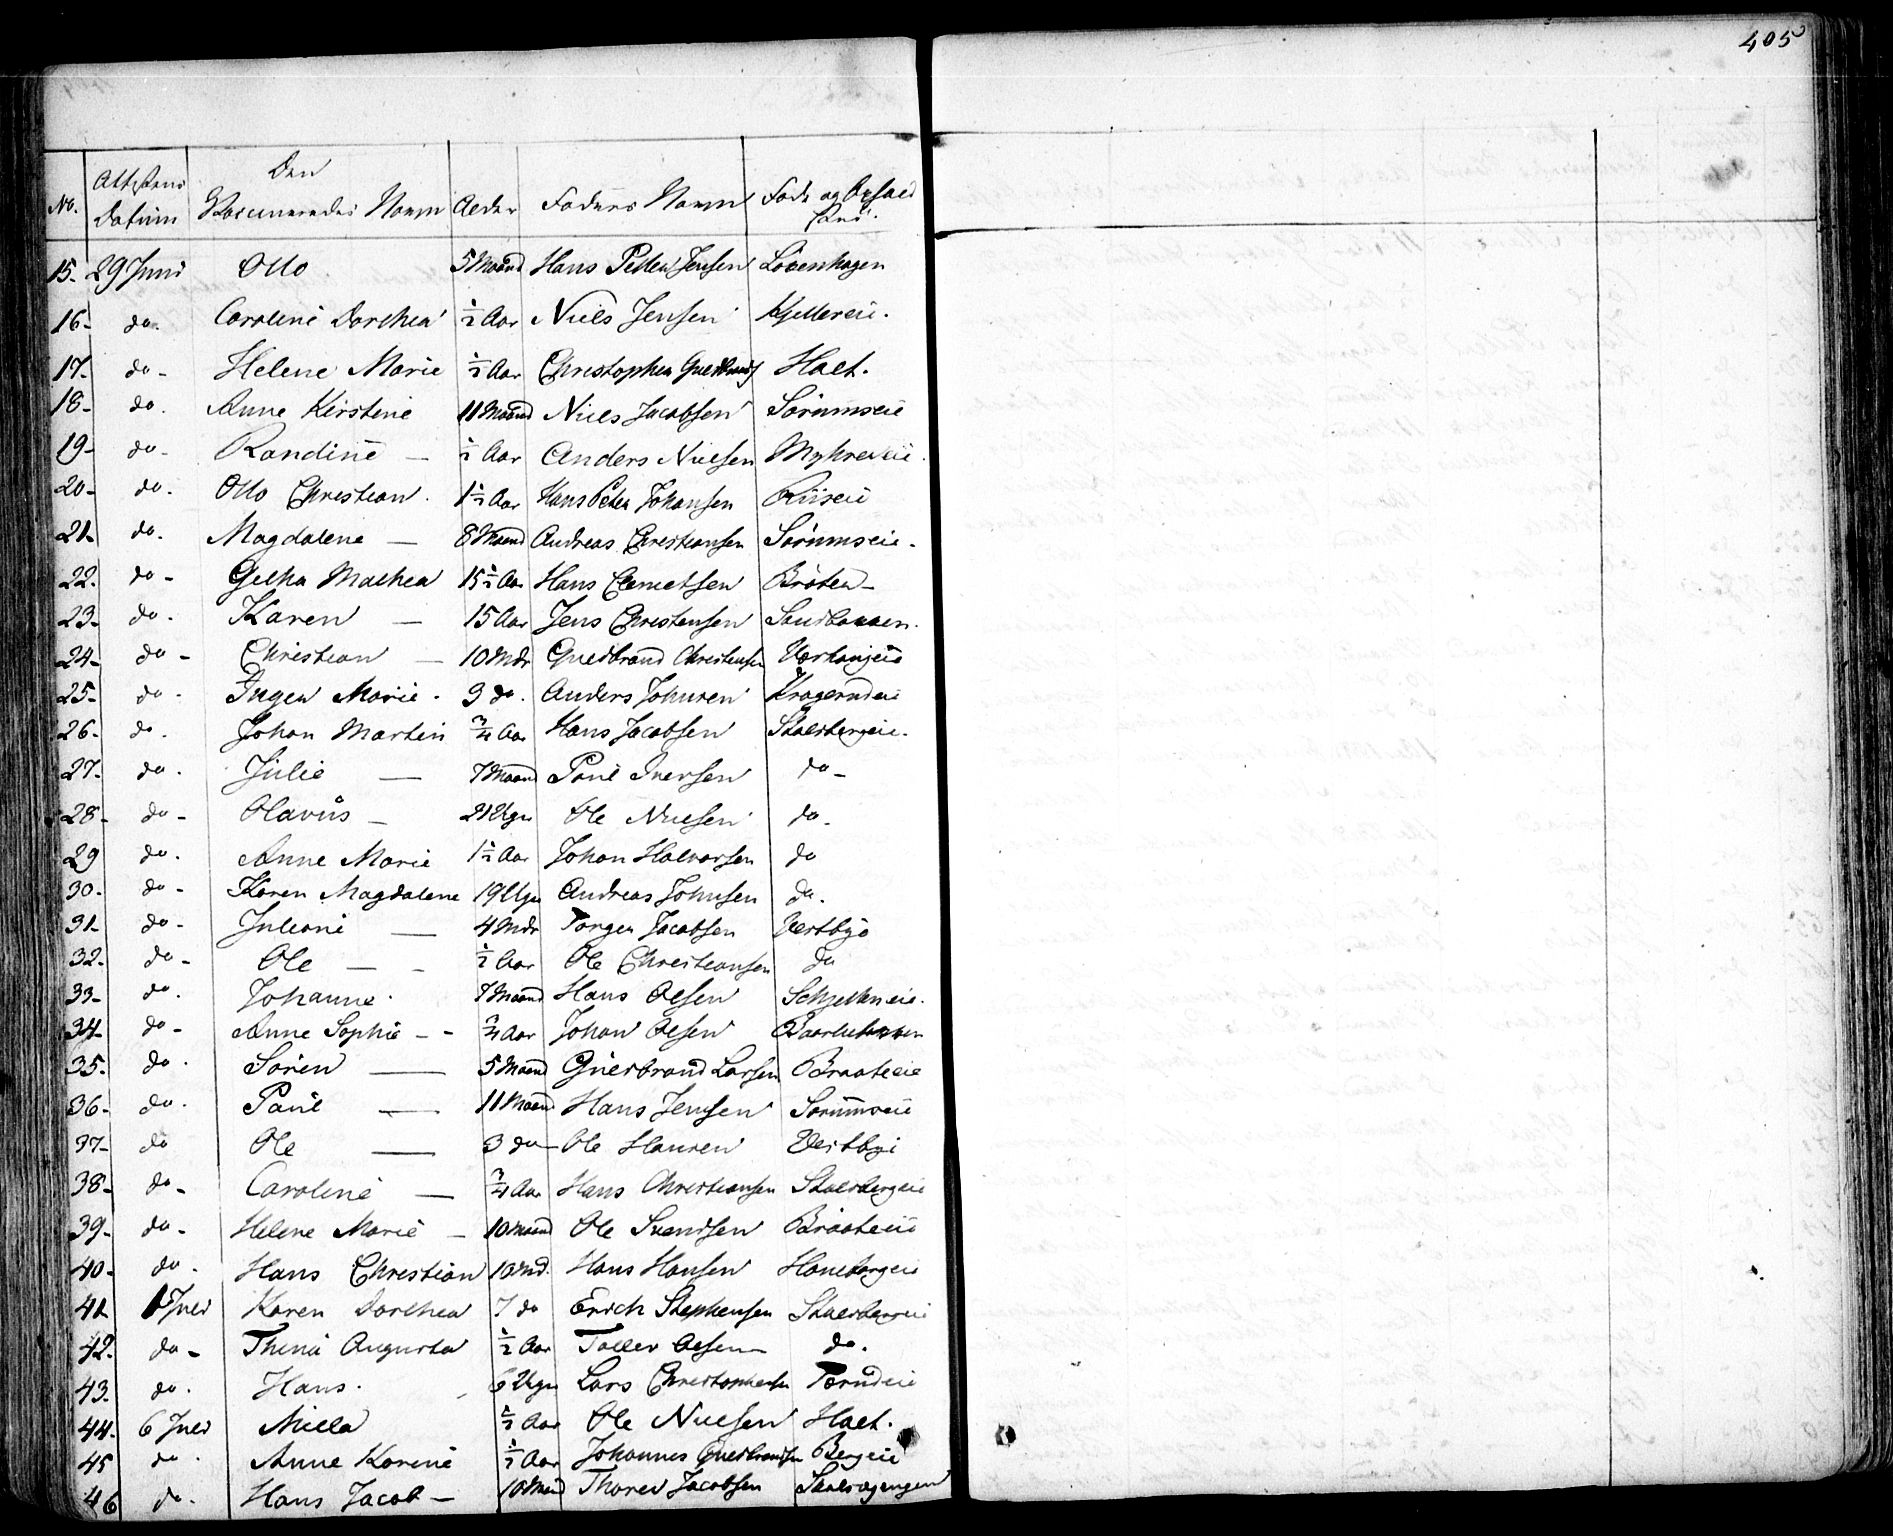 405
No. Attestens Datum Den Vaccineredes Navn Alder Faders Navn Føde og Opholds Sted
15. 29 Juni Otto 5 Maaned Hans Petter Jensen Lövenhagen
16- do. Caroline Dorthea ½ Aar Niels Jensen Kjellereie.
17- do- Helene Marie ½ Aar Christopher Gulbrands Holt.
18- do. Anne Kirstine 11 Maaned Niels Jacobsen Sørumseie
19- do- Randine - ½ Aar Anders Nielsen Myhreeie.
20- do. Otto Christian. 1½ Aar Hans Peder Johansen Riiseie
21- do. Magdalene - 8 Maaned Andreas Christiansen Sørumseie-
22. do- Mathea 15½ Aar Hans Clemetsen Bröten-
23- do. Karen - 15 Aar Jens Christensen Sandbakken.
24- do- Christian - 10 Mdr Gulbrand Christensen
25- do. Inger Marie. 9 do. Anders Johnsen Kragerudeie
26- do. Johan Martin ¾ Aar Hans Jacobsen Skulsbergeie.
27- do. Julie - 7 Maaned Paul Iversen do-
28- do- Olavus - 21 Uger Ole Nielsen do-
29 do. Anne Marie 1½ Aar Johan Halvorsen do
30- do- Karen Magdalene 19 Uger Andreas Johnsen do.
31- do- Juliane - 4 Mdr Torger Jacobsen Vestbye
32- do- Ole - - ½ Aar Ole Christiansen do
33- do. Johanne. 7 Maaned Hans Olsen
34- do- Anne Sophie - - ¾ Aar Johan Olsen
35- do. Sören - 5 Maaned Gulbrand Larsen Braateeie
36- do. Paul - 11 Maaned Hans Jensen Sørumseie
37- do Ole - 3 do- Ole Hansen Vestbye
38- do- Caroline - ¾ Aar Hans Christiansen Skulsbergeie
39- do- Helene Marie - 10 Maaned Ole Svendsen Braateeie
40- do. Hans Christian 10 Md. Hans Hansen Hanebergeie
41 1 Juli Karen Dorthea 7 do Erich Stephensen Skulsbergeie
42. do- Thina Augusta ½ Aar Toller Olsen- do.
43. do. Hans. 6 Uger Lars Christophersen Tærudeie
44- 6 Juli Milla ½ Aar Ole Nielsen Holt.
45 do. Anne Karine ½ Aar Johannes Gulbrandsen Bergeie
46 do. Hans Jacob - 10 Maaned Thorer Jacobsen